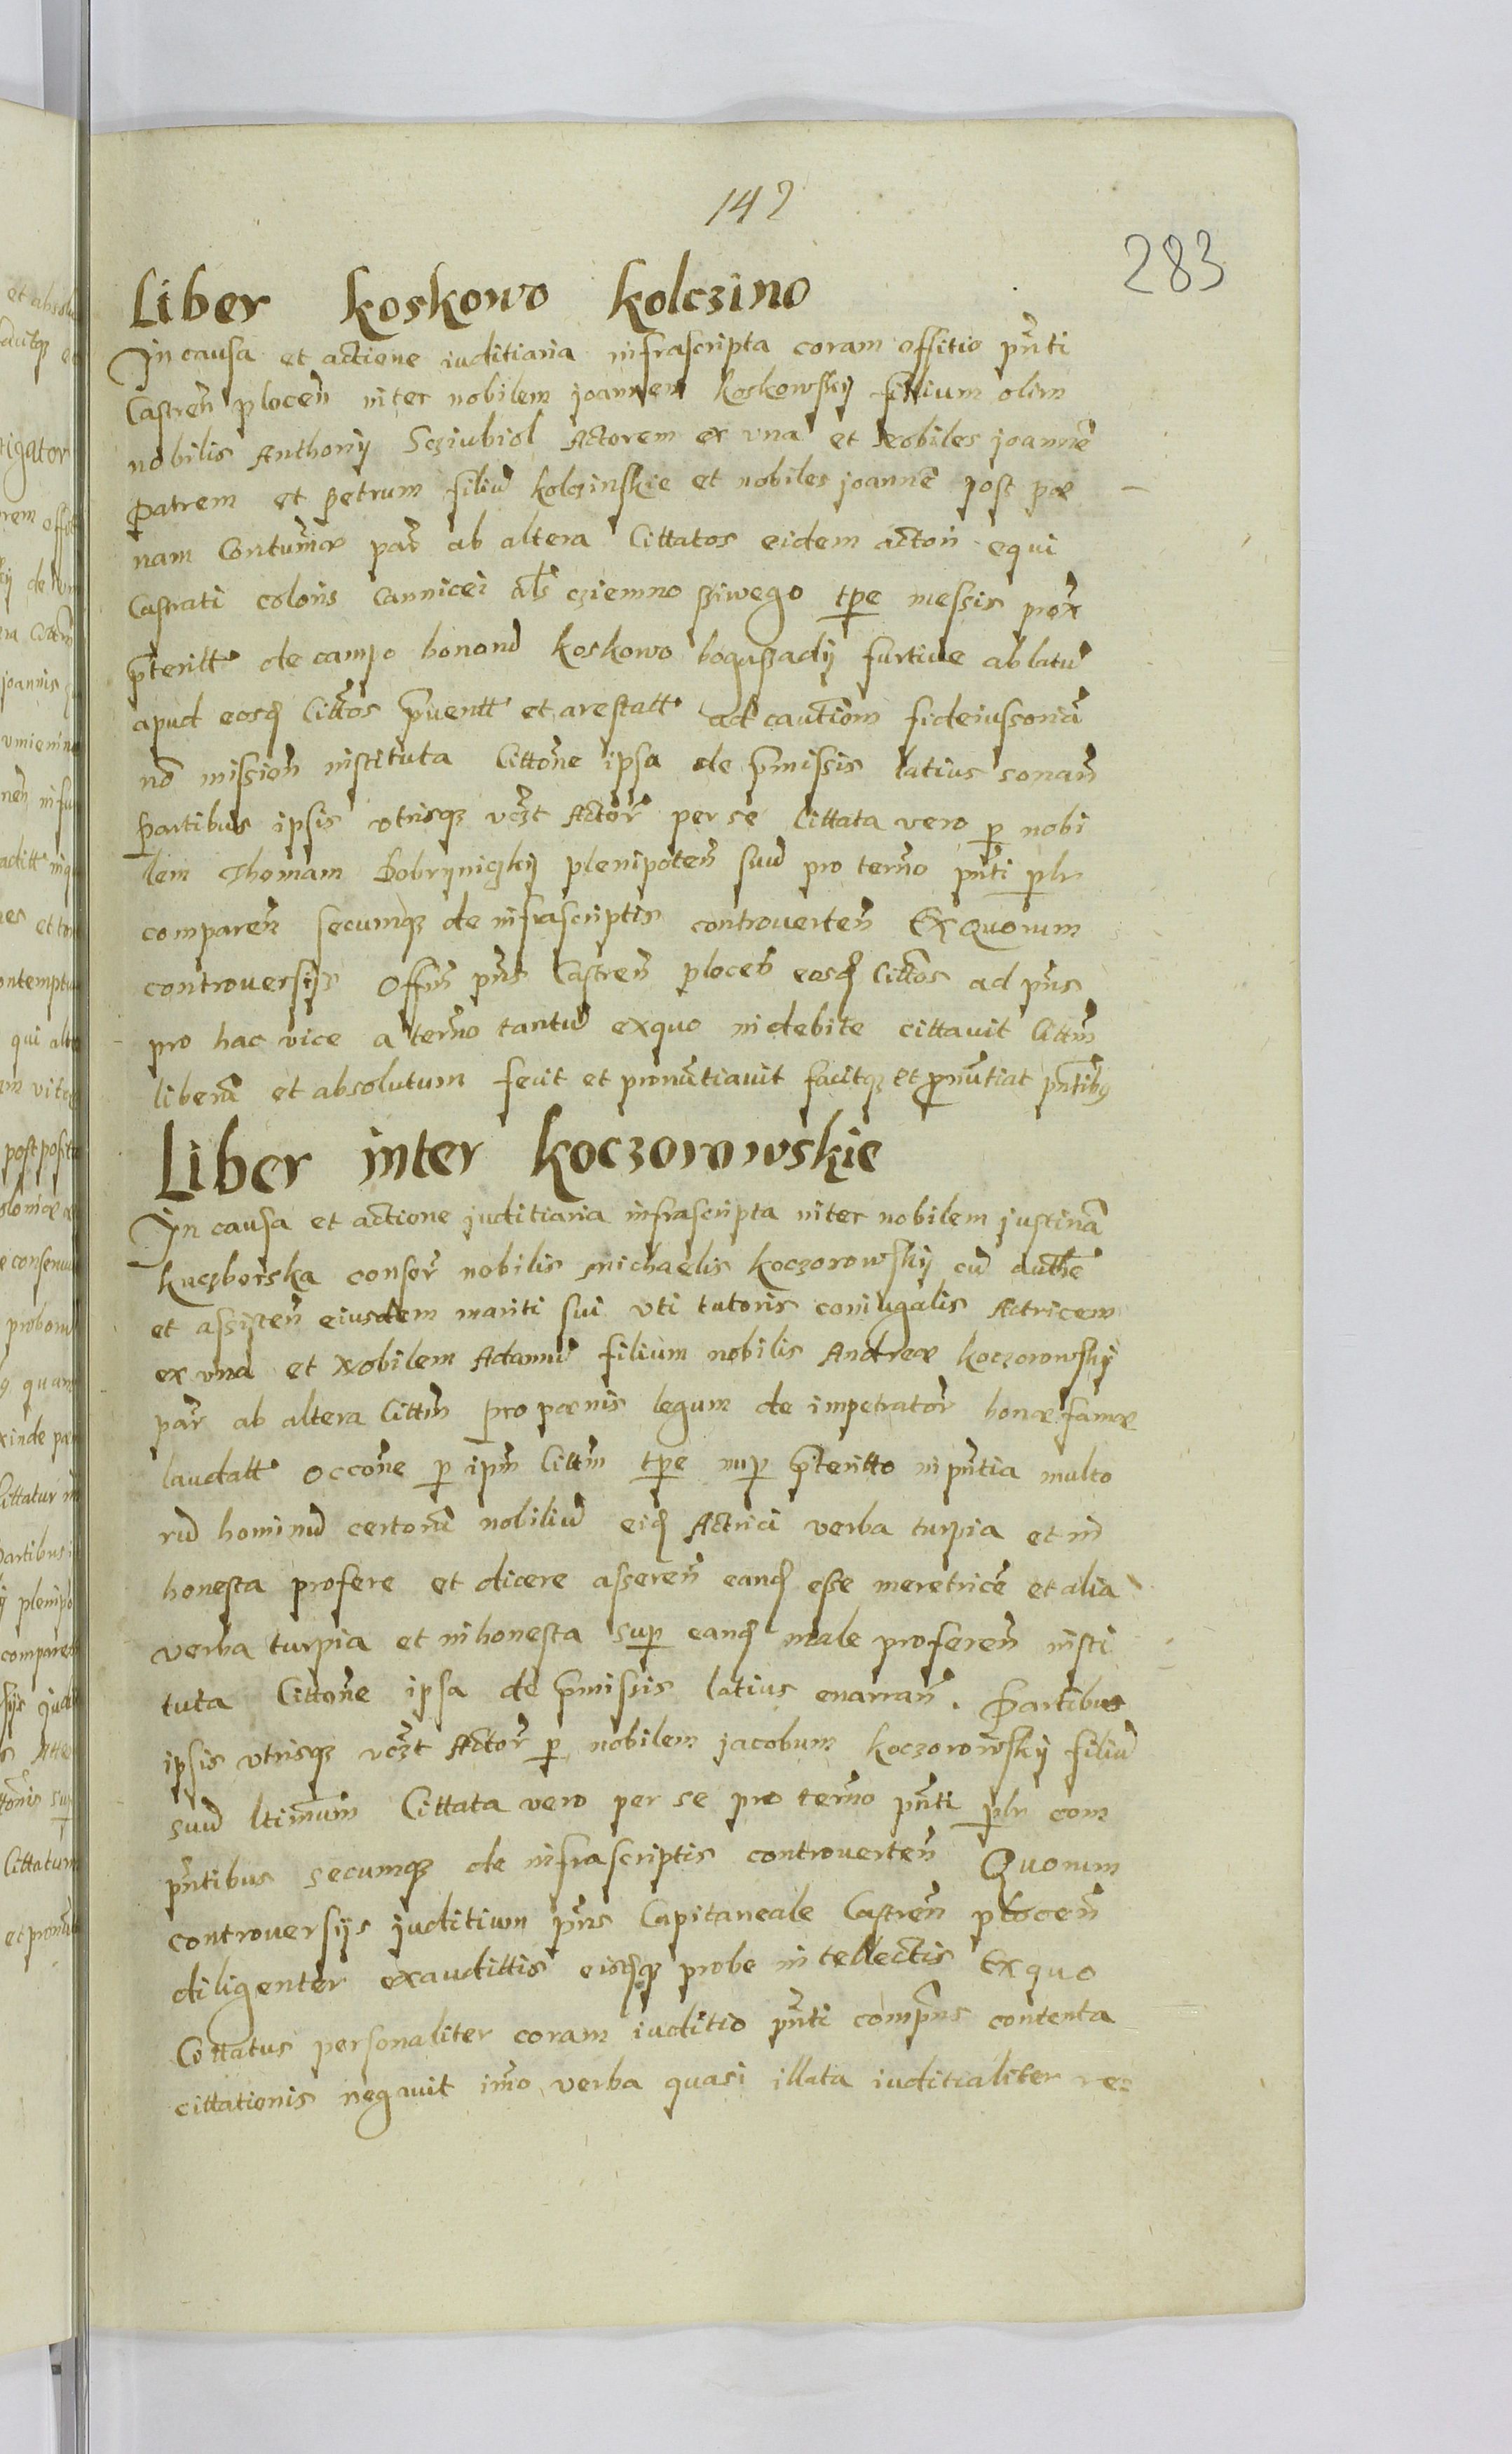 142
283
Liber koskowo kolczino
In causa et actione iuditiaria infrascripta coram offitio pñti
Castreñ ploceñ inter nobilem joannem koskowskij filium olim
nobilis Anthonij Scziubiol Actorem ex vna et Nobiles joannẽ
patrem et petrum filiũ kolczinskie et nobiles joannẽ post pœ
nam Contumã par ab altera Cittatos eidem actori equi
Castrati coloris Cannicei als cziemno ssiwego tpe messis prox
pteritt de campo bonorũ koskowo bogussadij furtiue ablatũ
apud eosd Cittos puentt et arestatt ad cautiom fideiussoriã
nõ missioñ instituta Cittoñe ipsa de pmissis latius sonañ
partibus ipsis vtrisqz vczt Actor per se Cittata vero p nobi
lem Thomam Dobrÿniczkij plenipoteñ suũ pro termõ pñti plr
compareñ secumqz de infrascriptis controuerteñ Ex Quorum
controuersijs Offm pñs Castreñ ploceñ eosd Cittos ad pñs
pro hac vice a termõ tantũ exquo indebite cittauit Cittm
liberũ et absolutum fecit et pronũtiauit facitqz et pnũtiat pñtibq
Liber inter koczorowskie
In causa et actione juditiaria infrascripta inter nobilem justinã
kuczborska consor nobilis michaelis koczorowskij cũ authẽ
et assisteñ eiusdem mariti sui vti tutoris coniugalis Actricem
ex vna et Nobilem Adamũ filium nobilis Andreæ koczorowskij
par ab altera Cittm pro pœnis legum de impetrator bonæ famæ
laudatt occoñe p ipm Cittm tpe nup pteritto in pñtia multo
rũ hominũ certorũ nobiliũ eid Actrici verba turpia et in
honesta profere et dicere assereñ eand esse meretricẽ et alia
verba turpia et inhonesta sup eand male profereñ insti
tuta Cittoñe ipsa de pmissis latius enarrañ. Partibus
ipsis vtrisqz vczt Actor p nobilem jacobum koczorowskij filiũ
suũ ltimum Cittata vero per se pro termõ pñti plr com
pñtibus secumqz de infrascriptis controuerteñ Quorum
controuersijs juditium pñs Capitaneale Castreñ ploceñ
diligenter exaudittis eisdqz probe intellectis Ex quo
Cittatus personaliter coram iuditio pñti compñs contenta
cittationis negauit imo verba quasi illata iuditialiter re=